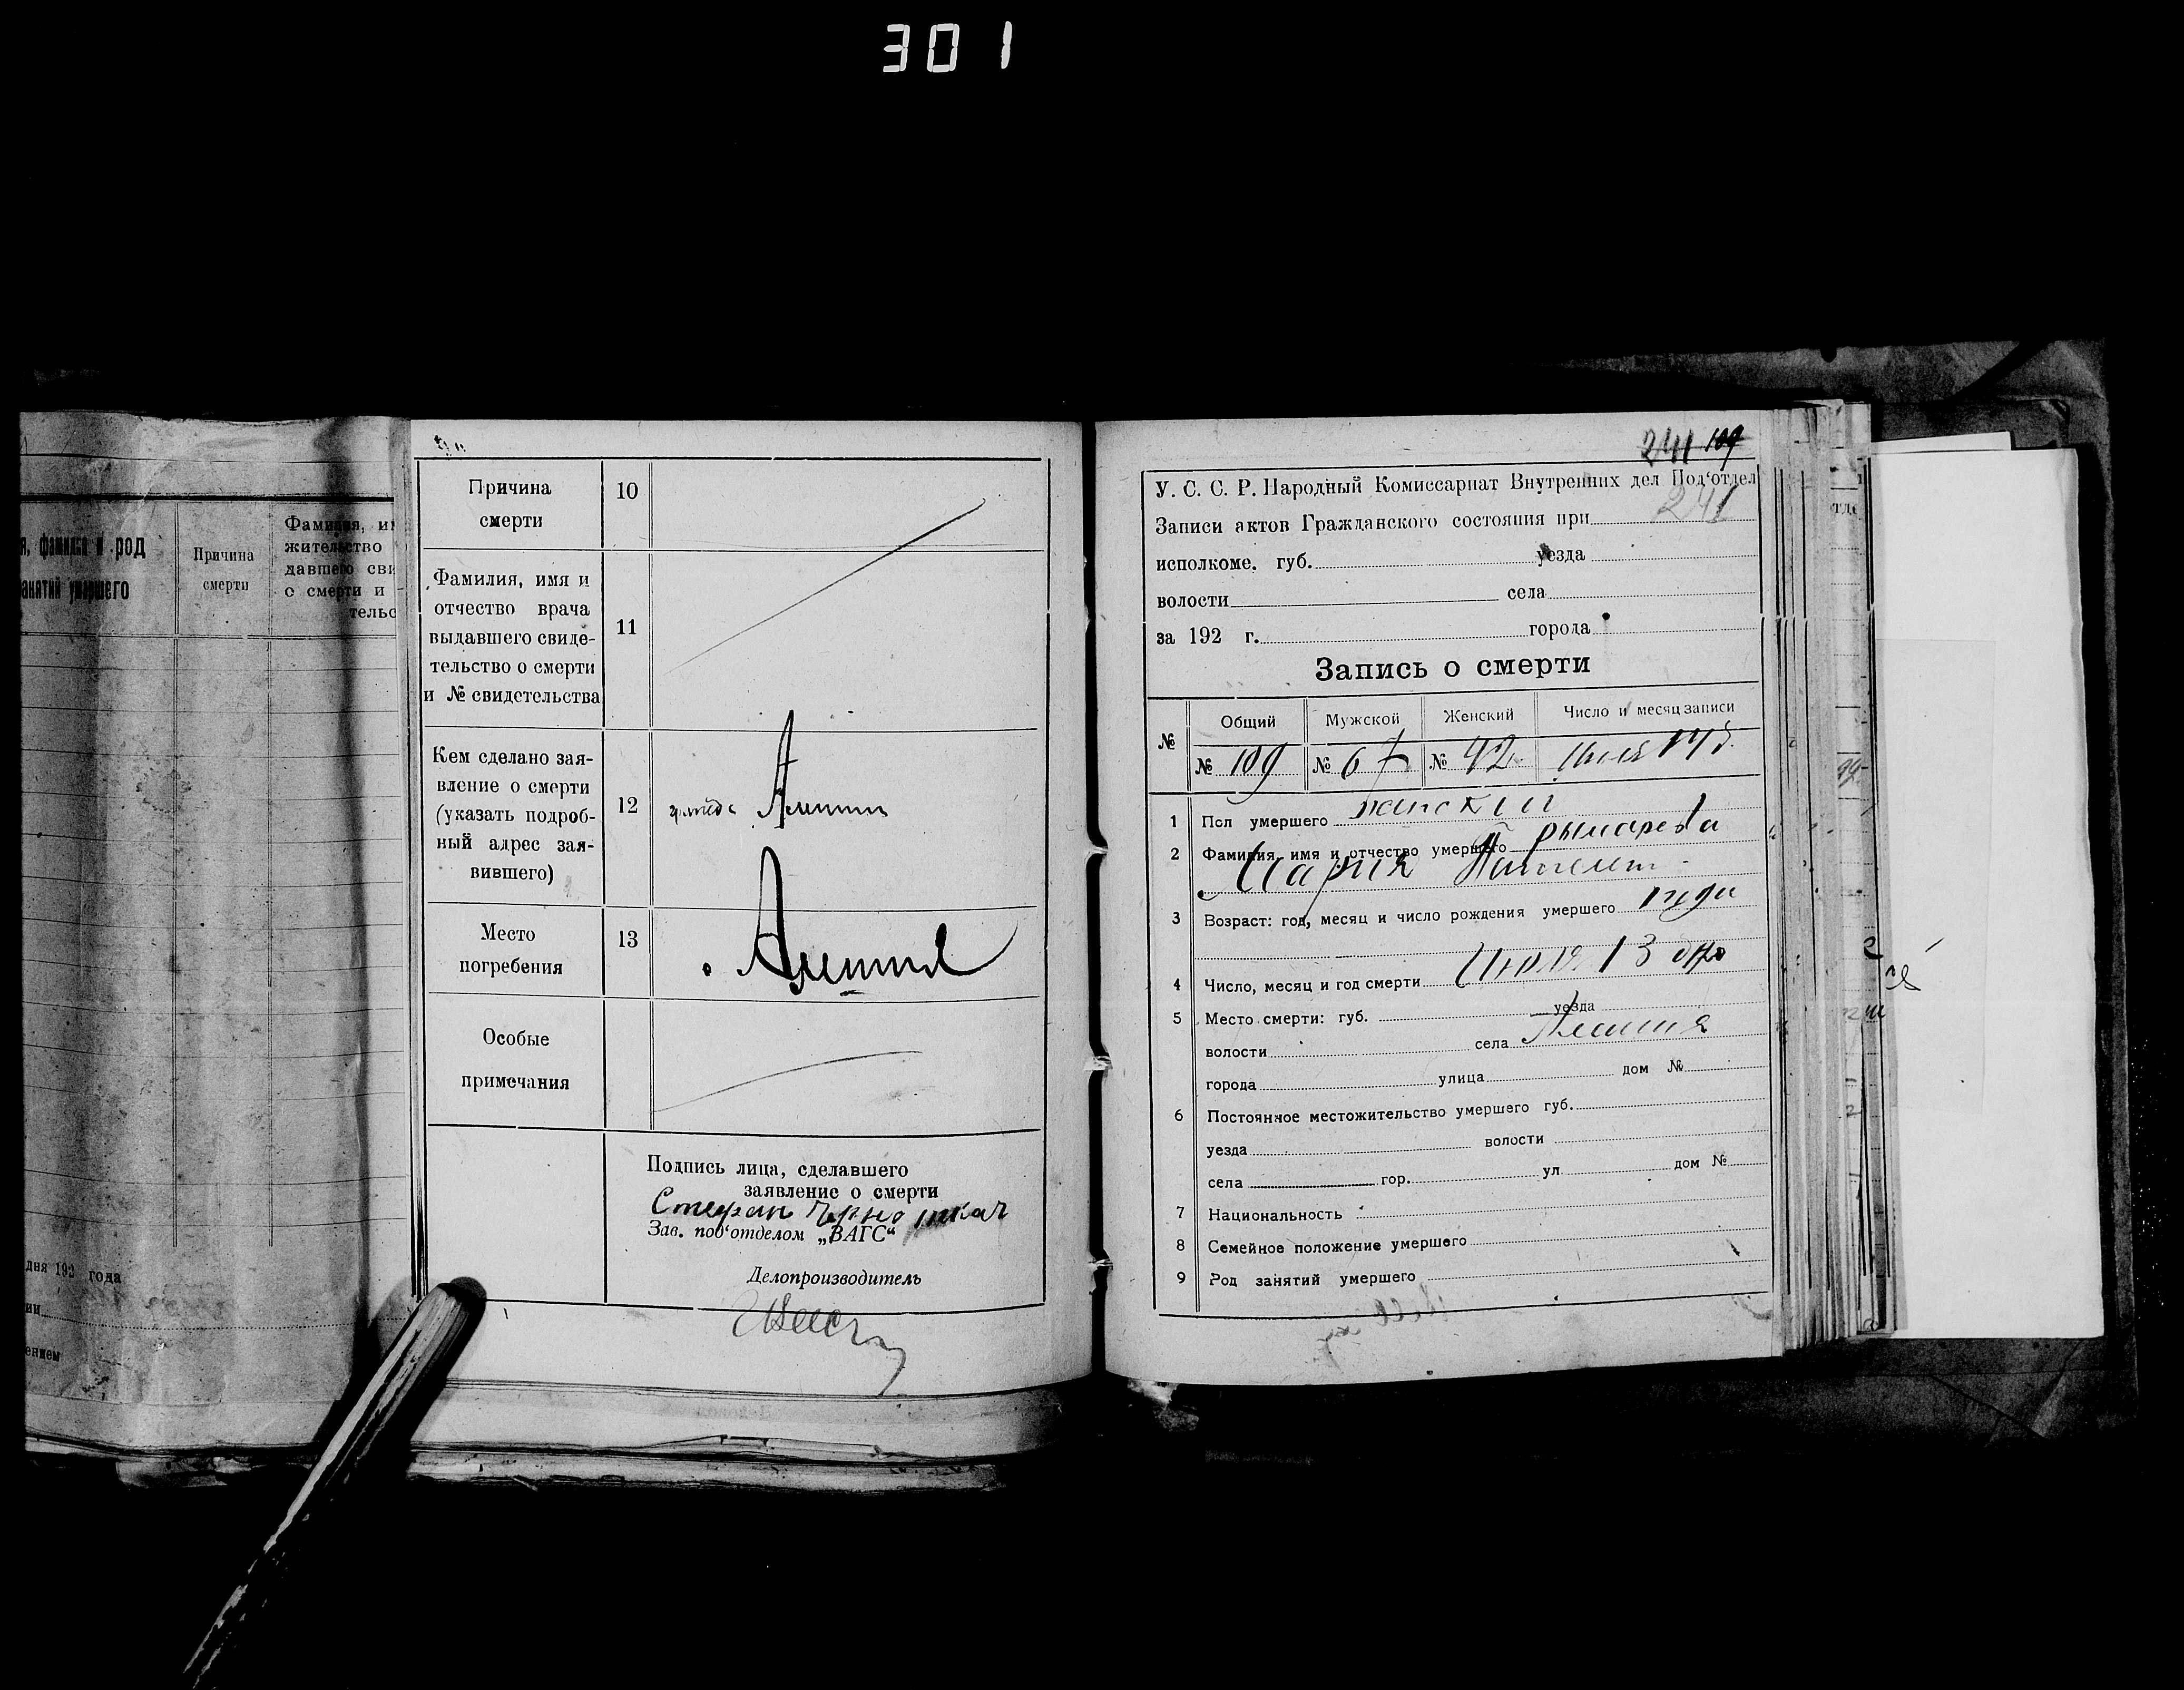 301
я, фамилия и род
занятий умершего
Причина
смерти
Фамилия, им
жительство
давшего сви
о смерти и
тельс
дня 192 года
ии
ением
Причина
смерти
10
Фамилия, имя и
отчество врача
выдавшего свиде-
тельство о смерти
и № свидетельства
11
Кем сделано зая-
вление о смерти
(указать подроб-
ный адрес зая-
вившего)
12
Место
погребения
13
Особые
примечания
Подпись лица, сделавшего
заявление о смерти
Стефан
Зав. под'отделом „ВАГС“
Делопроизводитель
241 109
У. С. С. Р. Народный Комиссариат Внутренних дел Под'отдел
Записи актов Гражданского состояния при 241
исполкоме. губ. уезда
волости села
за 192 г. города
Запись о смерти
№ Общий Мужской Женский Число и месяц записи
№ 109 № 67 № 42 Июля 14
1 Пол умершего женский
2 Фамилия, имя и отчество умершего Рымарева
Мария
3 Возраст: год, месяц и число рождения умершего
4 Число, месяц и год смерти Июля 13
5 Место смерти: губ. уезда
волости села
города улица дом №
6 Постоянное местожительство умершего губ.
уезда волости
села гор. ул. дом №
7 Национальность
8 Семейное положение умершего
9 Род занятий умершего